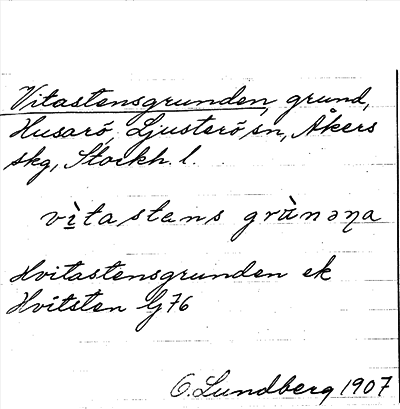 Vitastensgrunden, grund,
Husarö, Ljusterö sn, Åkers
skg, Stockh. l.
vì̲tastens grùnəŋa
Hvitastensgrunden ek
Hvitsten G76
O. Lundberg 1907